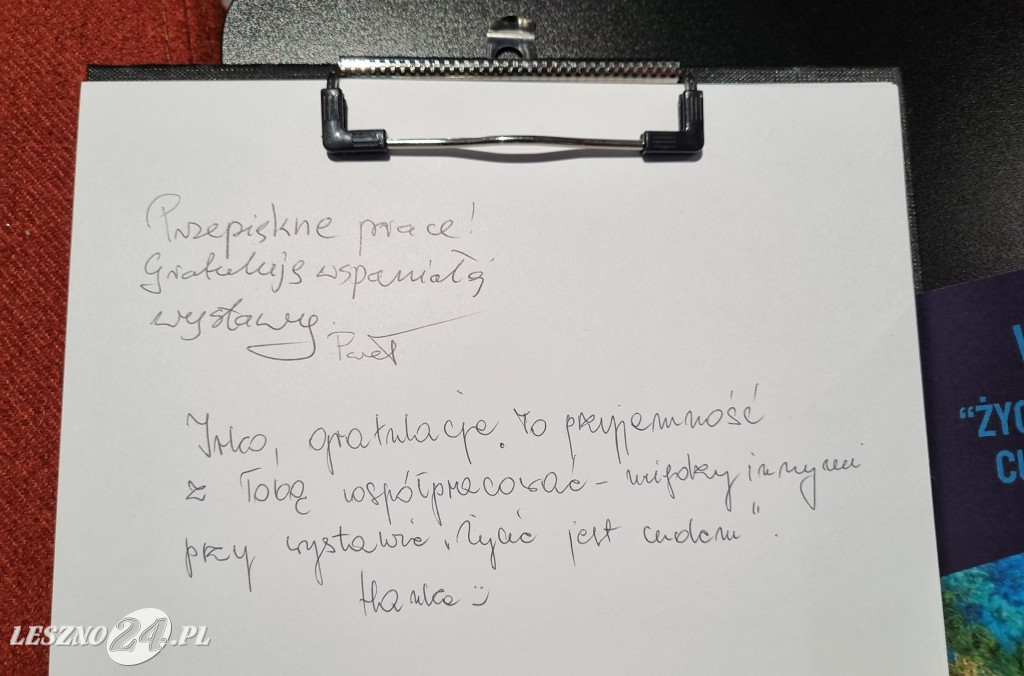 Przepiękne prace!
Gratuluję wspaniałej
wystawy.
Paweł
Irko, gratulacje. To przyjemność
z Tobą współpracować – między innymi
przy wystawie „Życie jest cudem".
Hanka :)
"ŻYC
CU
LESZNO24.PL